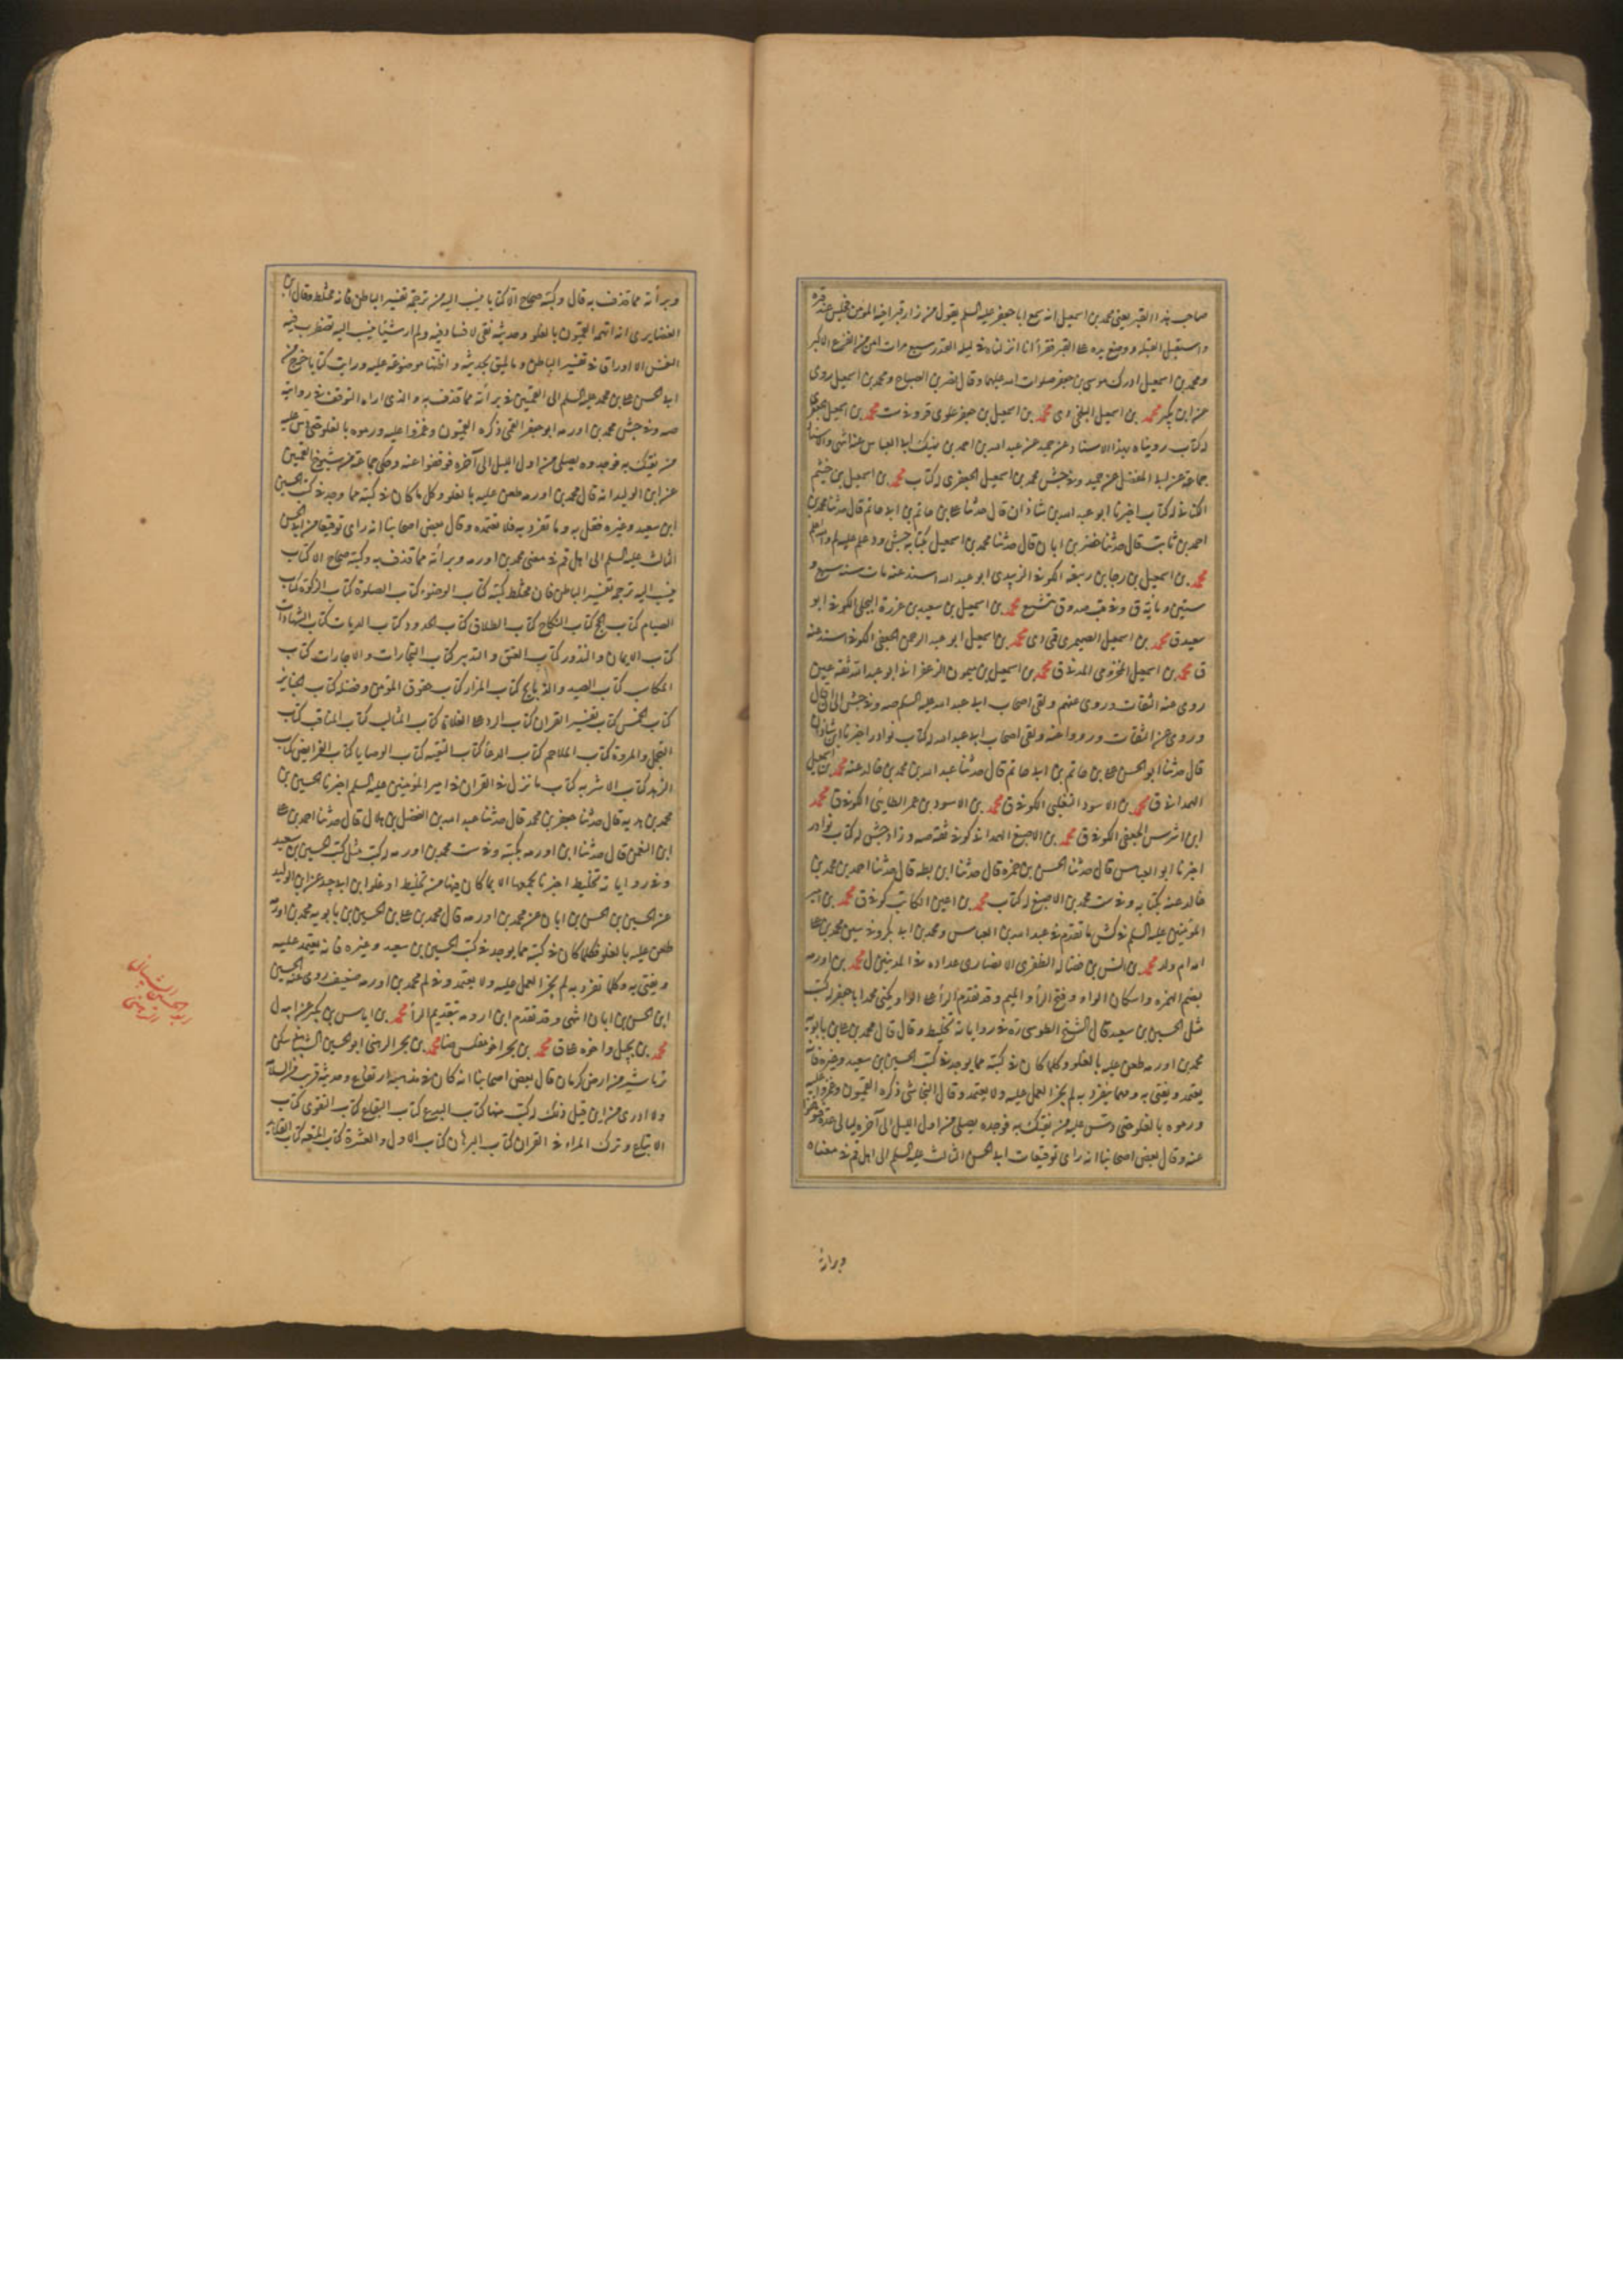 صاحب هذا القبر يعنى محمد بن اسمعيل انه سمع ابا جعفر عليه السلم يقول من زار قبر اخيه المؤمن فجلس عند قبره
واستقبل القبلة ووضع يده على القبر فقرأ انا انزلناه فى ليلة القدر سبع مرات امن من الفزع الاكبر
ومحمد بن اسمعيل ادرك موسى بن جعفر صلوات الله عليهما وقال نضر بن الصباح ومحمد بن اسمعيل روى
عن ابن بكير محمد بن اسمعيل البلخى دى محمد بن اسمعيل بن جعفر علوى ق وفى ست محمد بن اسمعيل الجعفرى
له كتاب رويناه بهذا الاسناد عن حميد عن عبد الله بن احمد بن نهيك ابى العباس عنه انتهى والاسناد
جماعة عن ابى المفضل عن حميد وفى جش محمد بن اسمعيل الجعفرى له كتاب محمد بن اسمعيل بن خثيم
الكنانى له كتاب اخبرنا ابو عبد الله بن شاذان قال حدثنا على بن حاتم بن ابى حاتم قال حدثنا محمد بن
احمد بن ثابت قال حدثنا خضر بن ابان قال حدثنا محمد بن اسمعيل بكتابه جش ود علم عليه لم والله اعلم
محمد بن اسمعيل بن رجا بن ربيعة الكوفى الزبيدى ابو عبد الله اسند عنه مات سنه سبع و
ستين ومأيه ق وفى قب صدوق يتشيع محمد بن اسمعيل بن سعيد بن عزرة البجلى الكوفى ابو
سعيد ق محمد بن اسمعيل الصيمرى قمى دى محمد بن اسمعيل ابو عبد الرحمن الجعفى الكوفى اسند عنه
ق محمد بن اسمعيل المخزومى المدنى ق محمد بن اسمعيل بن ميمون الزعفرانى ابو عبد الله ثقة عين
روى عنه الثقات وروى عنهم ولقى اصحاب ابى عبد الله عليه السلم صه وفى جش الى ان قال
وروى عن الثقات ورووا عنه ولقى اصحاب ابى عبد الله له كتاب نوادر اخبرنا ابن شاذان
قال حدثنا ابو الحسن على بن حاتم بن ابى حاتم قال حدثنا عبد الله بن محمد بن خالد عنه محمد بن اسمعيل
الهمدانى ق محمد بن الاسود التغلبى الكوفى ق محمد بن الاسود بن عمر الطايئى الكوفى ق محمد
ابن اشرس الجعفى الكوفى ق محمد بن الاصبغ الهمدانى كوفى ثقة صه وزاد جش له كتاب نوادر
اخبرنا ابو العباس قال حدثنا الحسن بن حمزه قال حدثنا ابن بطه قال حدثنا احمد بن محمد بن
خالد عنه بكتابه وفى ست محمد بن الاصبغ له كتاب محمد بن اعين الكاتب كوفى ق محمد بن امير
المؤمنين عليه السلم فى كش ما تقدم فى عبد الله بن العباس ومحمد بن ابى بكر وفى سين محمد بن على
امه ام ولد محمد بن انس بن فضاله الظفرى الانصارى عداده فى المدنيين ل محمد بن اورمه
بضم الهمزه واسكان الواو وفتح الرأ والميم وقد تقدم الرأ على الواو يكنى محمد ابا جعفر له كتب
مثل الحسين بن سعيد قال الشيخ الطوسى ره فى رواياته تخليط وقال قال محمد بن على بن بابويه
محمد بن اورمه طعن عليه بالغلو وكلما كان فى كتبه مما يوجد فى كتب الحسين بن سعيد وغيره فانه
يعتمد ويفتى به ومهما ينفرد به لم يجز العمل عليه ولا يعتمد وقال النجاشى ذكره القميون وغمزوا عليه
ورموه بالغلو حتى دس عليه من يفتك به فوجده يصلى من اول الليل الى آخره ليالى عدة فتوقفوا
عنه وقال بعض اصحابنا انه راى توقيعات ابى الحسن الثالث عليه السلم الى اهل قم فى معناه
وبرأته
وبرأته مما قذف به قال وكتبه صحاح الا كتابا ينسب اليه من ترجمة تفسير الباطن فانه مختلط وقال ابن
الغضايرى انه اتهمه القميون بالغلو وحديثه نقى لا فساد فيه ولم ار شيئا ينسب اليه تضطرب فيه
النفس الا اوراقا فى تفسير الباطن وما يليق بحديثه واظنها موضوعة عليه ورايت كتابا خرج من
ابى الحسن على بن محمد عليه السلم الى القميين فى برأته مما قذف به والذى اراه التوقف فى روايته
صه وفى جش محمد بن اورمه ابو جعفر القمى ذكره القميون وغمزوا عليه ورموه بالغلو حتى دس عليه
من يفتك به فوجدوه يصلى من اول الليل الى آخره فوقفوا عنه وحكى جماعة من شيوخ القميين
عن ابن الوليد انه قال محمد بن اورمه طعن عليه بالغلو وكل ما كان فى كتبه مما وجد فى كتب الحسين
ابن سعيد وغيره فقل به وما تفرد به فلا تعتمده وقال بعض اصحابنا انه راى توقيعا من ابى الحسن
الثالث عليه السلم الى اهل قم فى معنى محمد بن اورمه وبرأته مما قذف به وكتبه صحاح الا كتاب
ينسب اليه ترجمة تفسير الباطن فان مختلط كتبه كتاب الوضوء كتاب الصلوة كتاب الزكوة كتاب
الصيام كتاب الحج كتاب النكاح كتاب الطلاق كتاب الحدود كتاب الديات كتاب الشهادات
كتاب الايمان والنذور كتاب العتق والتدبير كتاب التجارات والاجارات كتاب
المكاسب كتاب الصيد والذبايح كتاب المزار كتاب حقوق المؤمن وفضله كتاب الجنايز
كتاب الخمس كتاب تفسير القران كتاب الرد على الغلاة كتاب المثالب كتاب المناقب كتاب
التجمل والمروة كتاب الملاحم كتاب الدعأ كتاب التقيه كتاب الوصايا كتاب الفرايض كتاب
الزهد كتاب الاشربه كتاب ما نزل فى القران فى امير المؤمنين عليه السلم اخبرنا الحسين بن
محمد بن هديه قال حدثنا جعفر بن محمد قال حدثنا عبد الله بن الفضل بن هلال قال حدثنا احمد بن على
ابن النعمن قال حدثنا ابن اورمه بكتبه وفى ست محمد بن اورمه له كتب مثل كتب حسين بن سعيد
وفى رواياته تخليط اخبرنا بجميعها الا ما كان فيها من تخليط او غلو ابن ابى جيد عن ابن الوليد
عن الحسين بن الحسن بن ابان عن محمد بن اورمه قال محمد بن على بن الحسين بن بابويه محمد بن اورمه
طعن عليه بالغلو فكلما كان فى كتبه مما يوجد فى كتب الحسين بن سعيد وغيره فانه يعتمد عليه
ويفتى به وكلما تفرد به لم يجز العمل عليه ولا يعتمد وفى لم محمد بن اورمه ضعيف روى عنه الحسين
ابن الحسن بن ابان انتهى وقد تقدم ابن ارومه بتقديم الرأ محمد بن اياس بن بكير عن ابيه ل
محمد بن بجيل واخوه على ق محمد بن بحر اخو مفلس ضا محمد بن بحر الرهنى ابو الحسين الشيبانى سكن
نرماشير من ارض كرمان قال بعض اصحابنا انه كان فى مذهبه ارتفاع وحديثه قريب من السلامة
ولا ادرى من اين قيل ذلك له كتب منها كتاب البدع كتاب البقاع كتاب التقوى كتاب
الاتباع وترك المراء فى القران كتاب البرهان كتاب الاول والعشرة كتاب المتعه كتاب القلايد